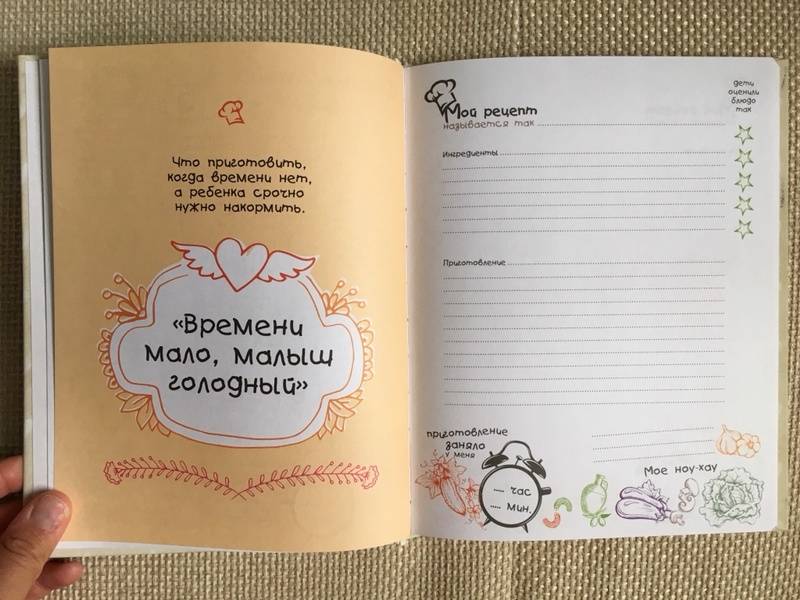 Что приготовить,
когда времени нет,
а ребенка срочно
нужно накормить.
«Времени
мало, малыш
голодный»
Мой рецепт
называется так
дети
оценили
блюдо
так
Ингредиенты
Приготовление
приготовление
заняло
у меня
час
мин.
Мое ноу-хау